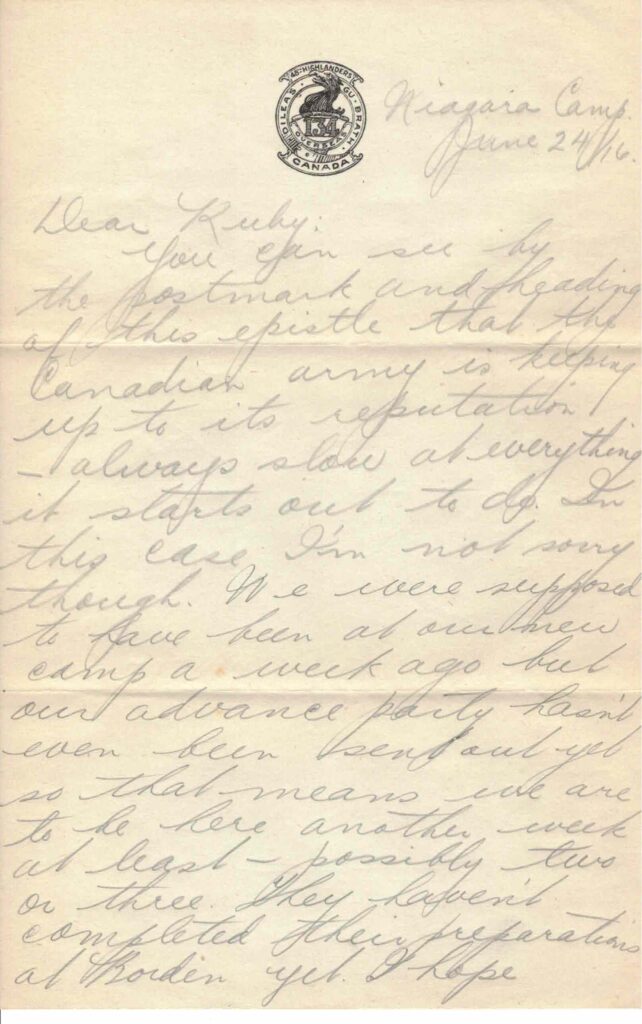 48TH HIGHLANDERS
DILEAS GU BRATH
134
OVERSEAS
CANADA
Niagara Camp.
June 24/16.
Dear Ruby:
You can see by
the postmark and heading
of this epistle that the
Canadian army is keeping
up to its reputation
– always slow at everything
it starts out to do. In
this case I'm not sorry
though. We were supposed
to have been at our new
camp a week ago but
our advance party hasn't
even been sent out yet
so that means we are
to be here another week
at least – possibly two
or three. They haven't
completed their preparations
at Borden yet. I hope